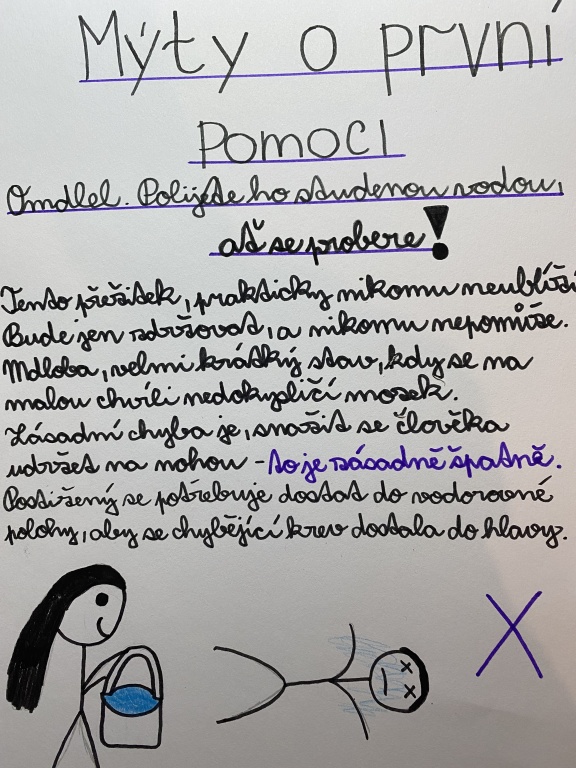 Mýty o první
Pomoci
Omdlel. Polijte ho studenou vodou,
ať se probere!
Tento přežitek, prakticky nikomu neublíží
Bude jen zdržovat, a nikomu nepomůže.
Mdloba, velmi krátký stav, kdy se na
malou chvíli nedokysličí mozek.
Zásadní chyba je, snažit se člověka
udržet na nohou - to je zásadně špatně.
Postižený se potřebuje dostat do vodorovné
polohy, aby se chybějící krev dostala do hlavy.
X